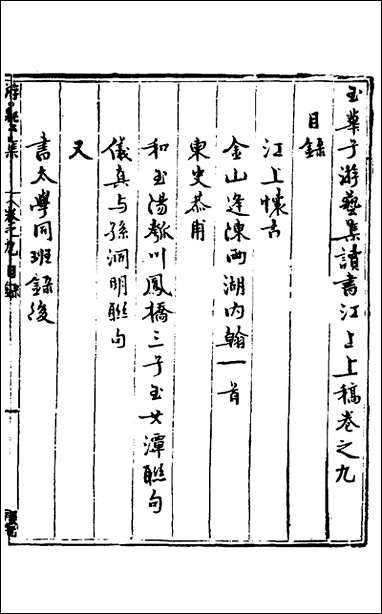 玉華子游藝集讀書江上上稿卷之九
目録
江上懷古
金山逢陳两湖内翰一首
東史恭甫
和王湯 川鳳橋三子玉女潭聯句
儀真与孫洞明聯句
又
書太學同班録後
游藝集 卷之九目録